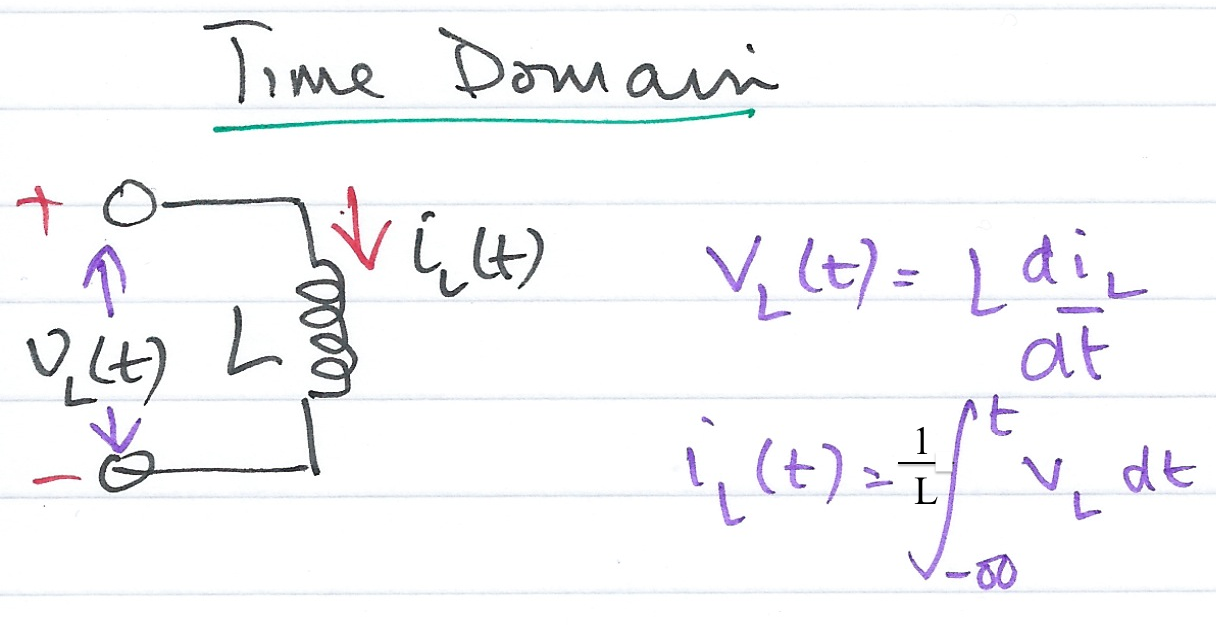 Time Domain
+
i_L(t)
V_L(t) = L di_L/dt
v_L(t) L
i_L(t) = 1/L ∫_{-∞}^{t} v_L dt
-